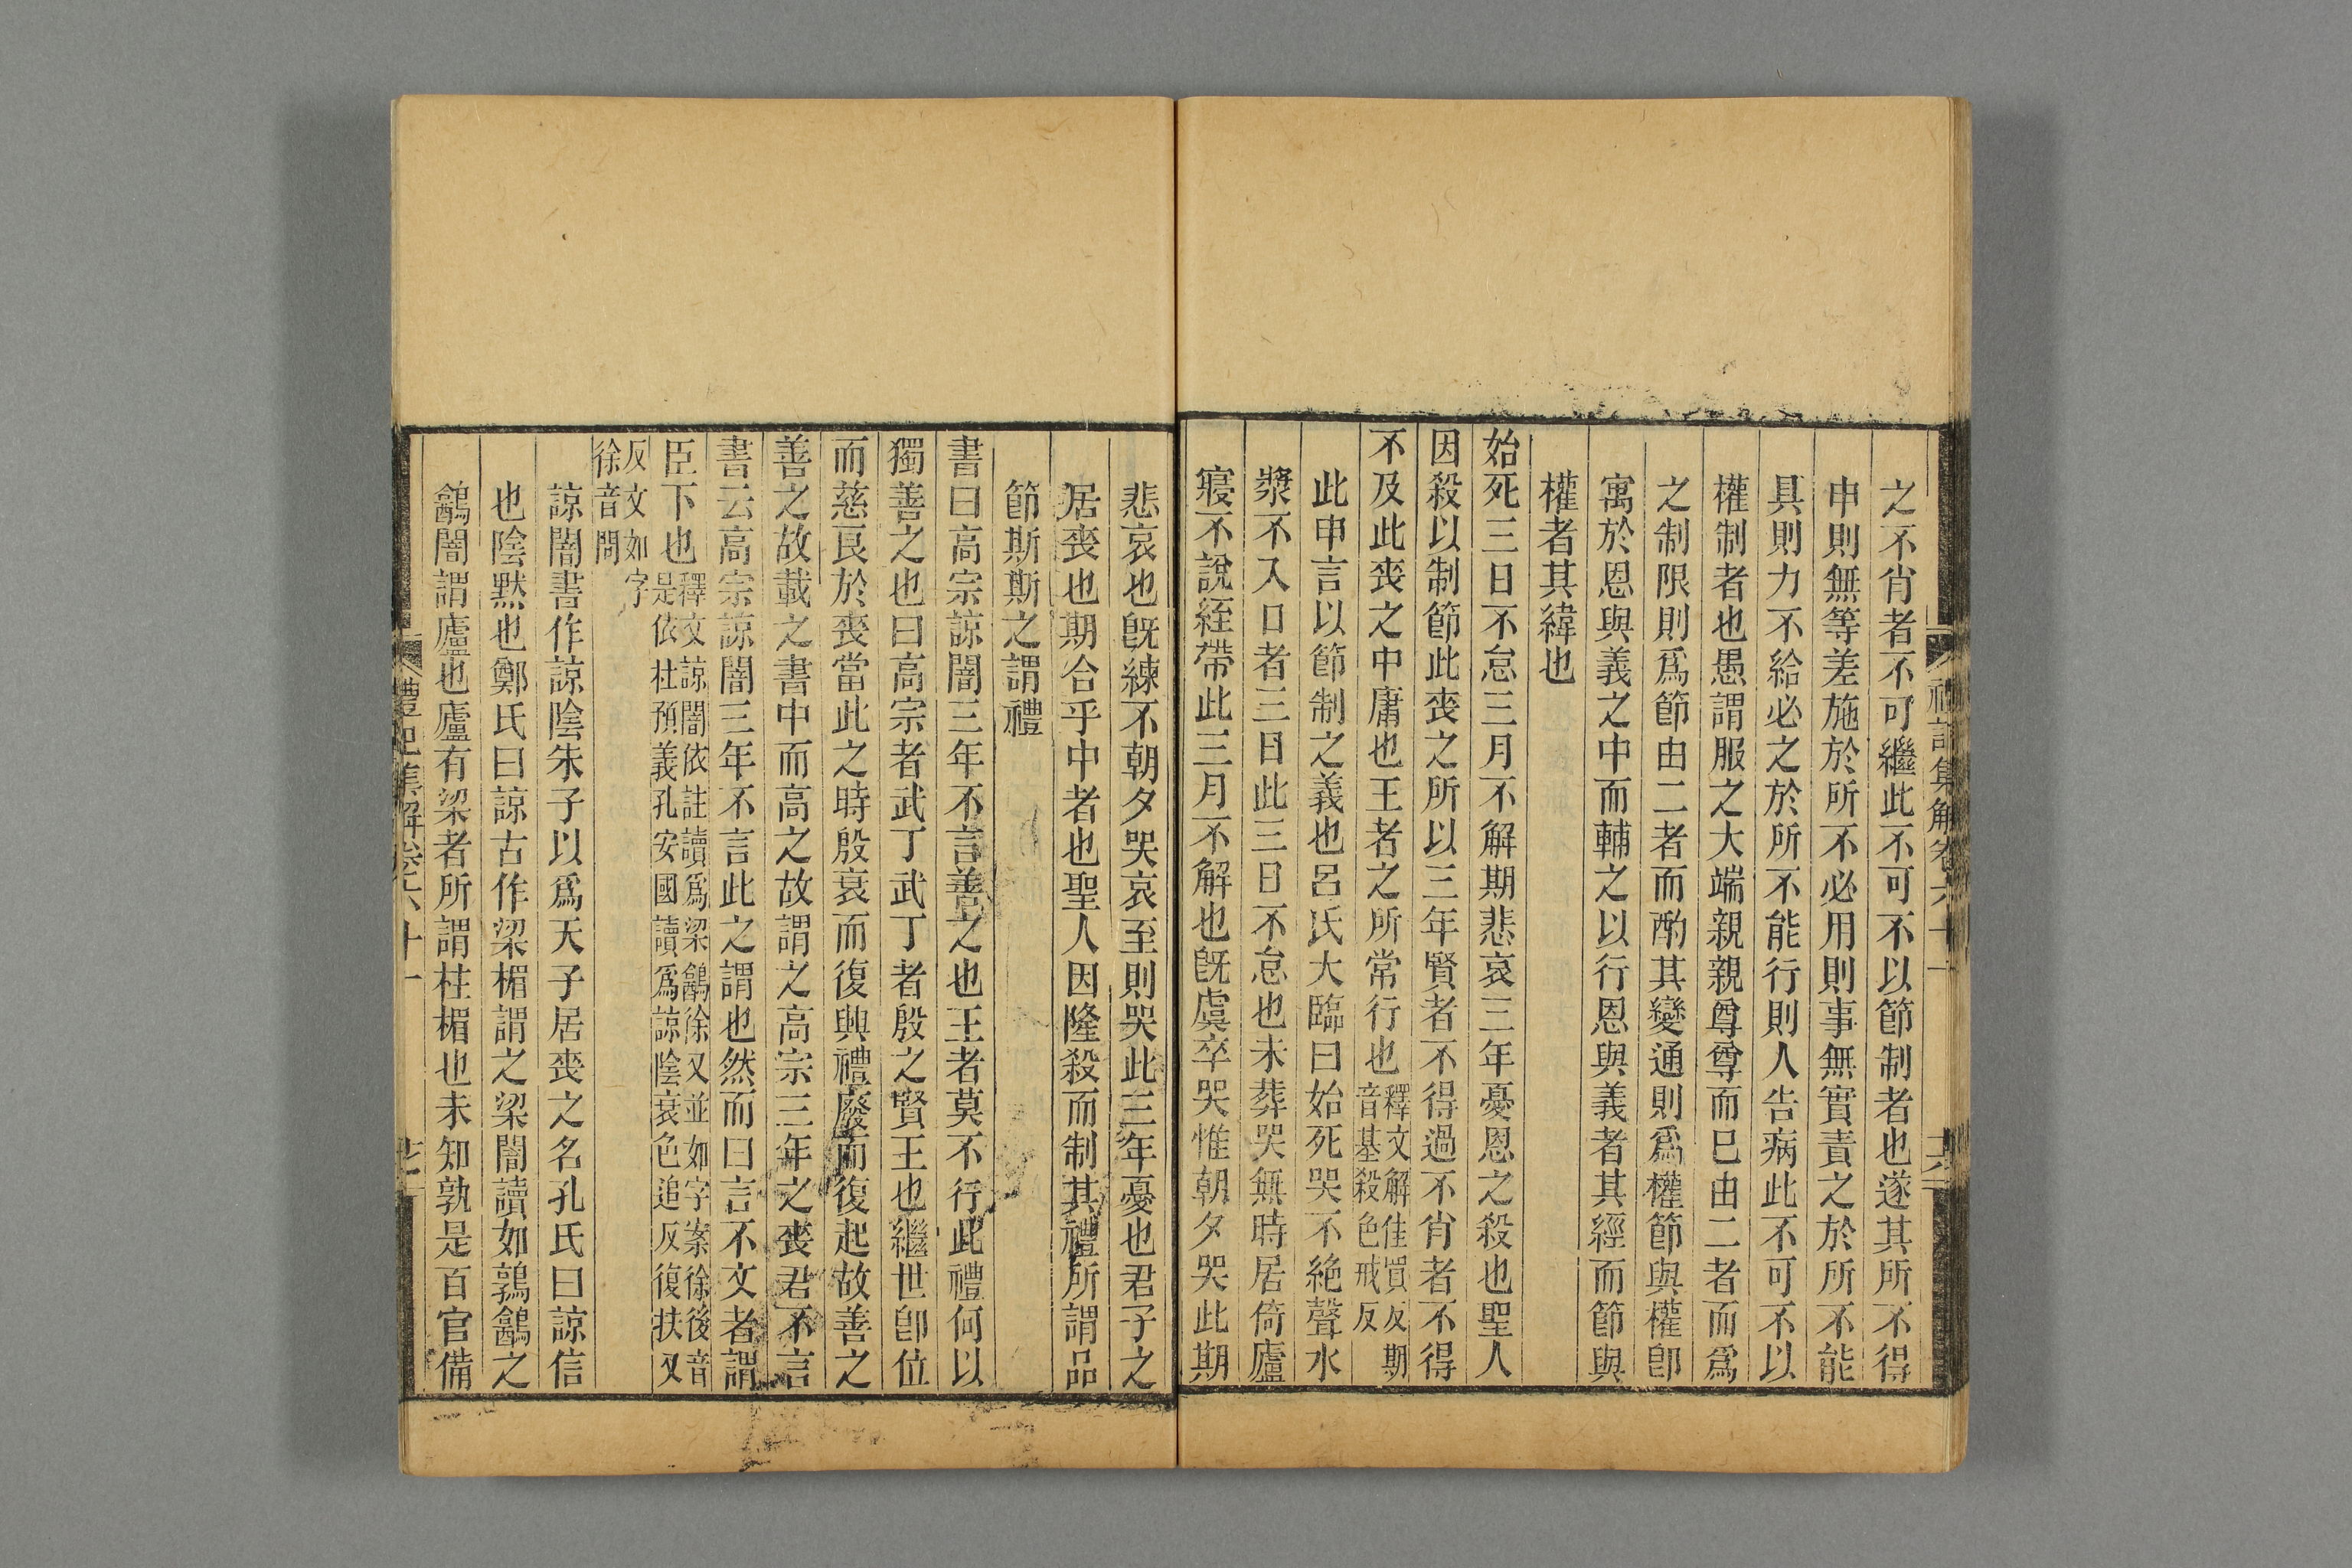 之不肖者不可繼此不可不以節制者也遂其所不得
申則無等差施於所不必用則事無實責之於所不能
具則力不給必之於所不能行則人告病此不可不以
權制者也愚謂服之大端親親尊尊而已由二者而爲
之制限則爲節由二者而酌其變通則爲權節與權卽
寓於恩與義之中而輔之以行恩與義者其經而節與
權者其緯也
始死三日不怠三月不解期悲哀三年憂恩之殺也聖人
因殺以制節此喪之所以三年賢者不得過不肖者不得
不及此喪之中庸也王者之所常行也釋文解佳買反期音基殺色戒反
此申言以節制之義也呂氏大臨曰始死哭不絶聲水
漿不入口者三日此三日不怠也未葬哭無時居倚廬
寢不說絰帶此三月不解也旣虞卒哭惟朝夕哭此期
悲哀也旣練不朝夕哭哀至則哭此三年憂也君子之
居喪也期合乎中者也聖人因隆殺而制其禮所謂品
節斯斯之謂禮
書曰高宗諒闇三年不言善之也王者莫不行此禮何以
獨善之也曰高宗者武丁武丁者殷之賢王也繼世卽位
而慈良於喪當此之時殷衰而復興禮廢而復起故善之
善之故載之書中而高之故謂之高宗三年之喪君不言
書云高宗諒闇三年不言此之謂也然而曰言不文者謂
臣下也釋文諒闇依註讀爲梁鶕徐又並如字案徐後音是依杜預義孔安國讀爲諒陰衰色追反復扶又
反文如字徐音問
諒闇書作諒陰朱子以爲天子居喪之名孔氏曰諒信
也陰默也鄭氏曰諒古作梁楣謂之梁闇讀如鶉鶕之
鶕闇謂廬也廬有梁者所謂柱楣也未知孰是百官備
禮記集解卷六十一